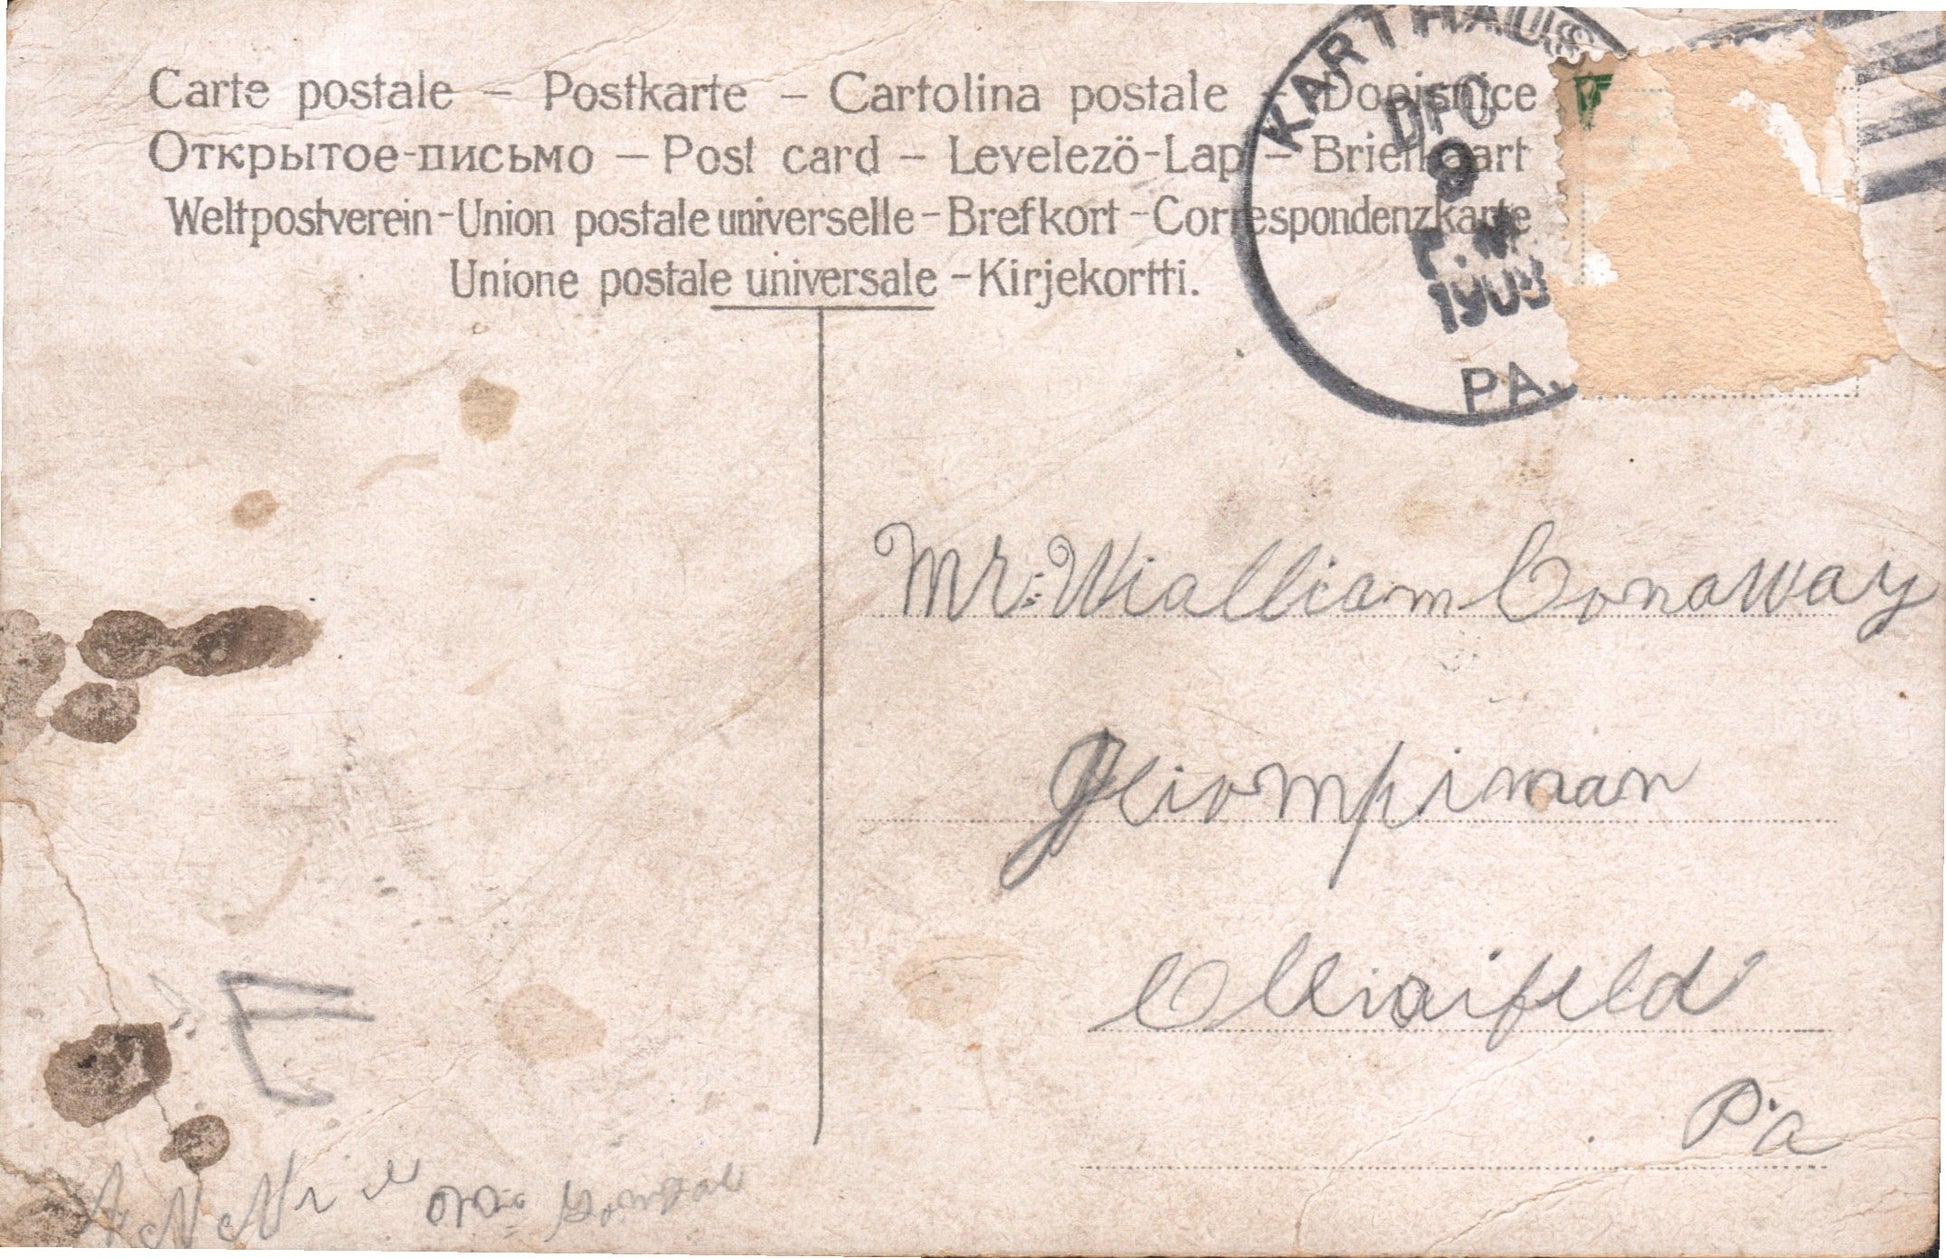 Carte postale – Postkarte – Cartolina postale – Dopisnice
Открытое-письмо – Post card – Levelezö-Lap – Briefkaart
Weltpostverein-Union postale universelle-Brefkort-Correspondenzkarte
Unione postale universale-Kirjekortti.
KARTHAUS
DEC
9
P.M.
1908
PA.
Mr. Wialliam Conaway
Pa
E